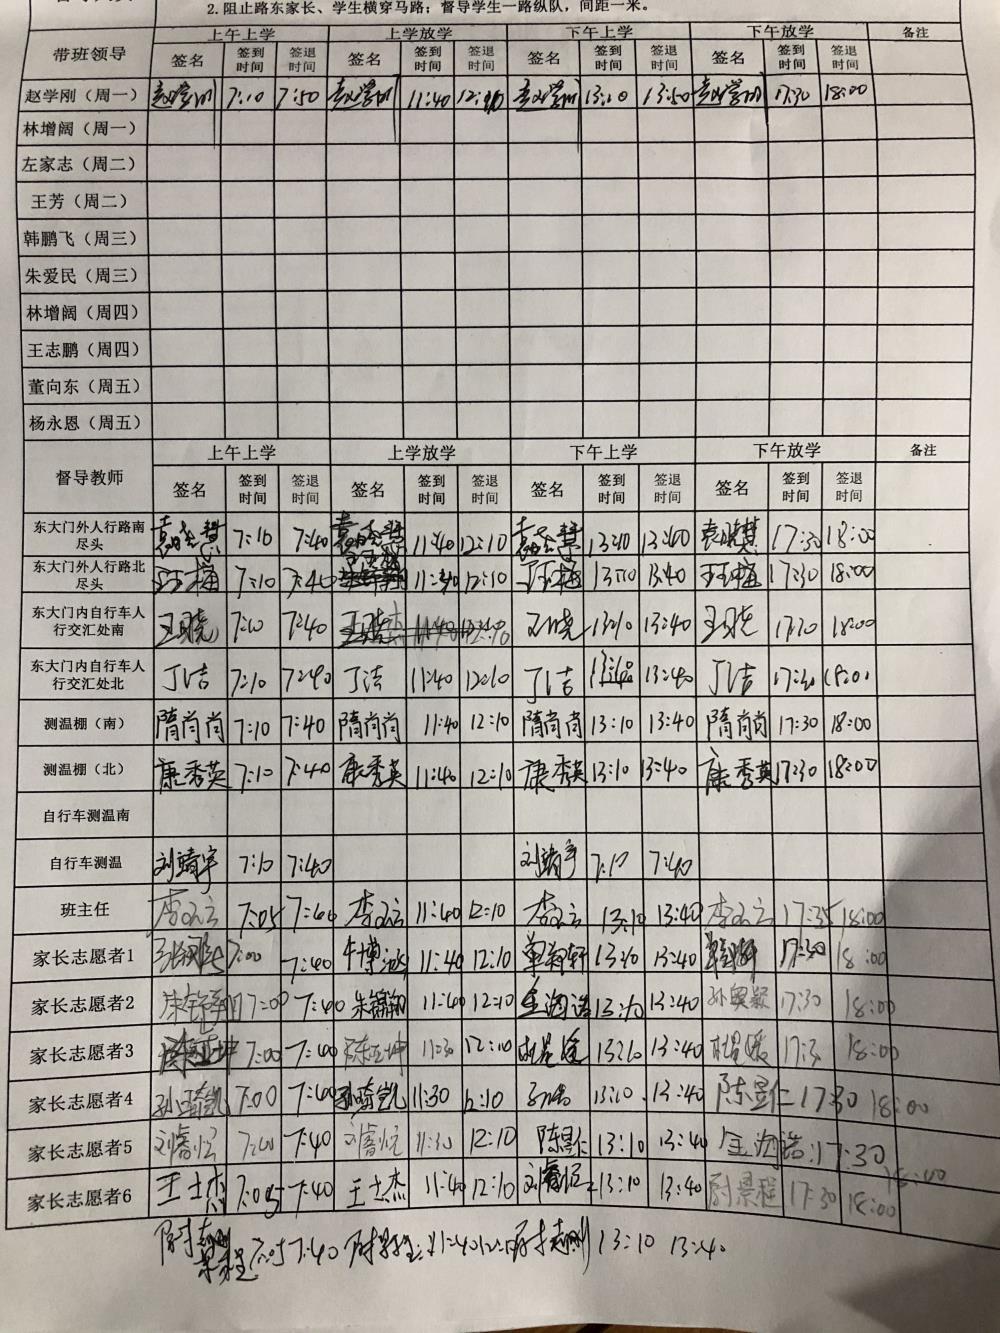 2. 阻止路东家长、学生横穿马路；督导学生一路纵队，间距一米。
带班领导 上午上学 上学放学 下午上学 下午放学 备注
签名 签到时间 签退时间 签名 签到时间 签退时间 签名 签到时间 签退时间 签名 签到时间 签退时间
赵学刚（周一） 赵学刚 7:10 7:50 赵学刚 11:40 赵学刚 13:10 13:50 赵学刚 17:30 18:00
林增阔（周一）
左家志（周二）
王芳（周二）
韩鹏飞（周三）
朱爱民（周三）
林增阔（周四）
王志鹏（周四）
董向东（周五）
杨永恩（周五）
督导教师 上午上学 上学放学 下午上学 下午放学 备注
签名 签到时间 签退时间 签名 签到时间 签退时间 签名 签到时间 签退时间 签名 签到时间 签退时间
东大门外人行路南尽头 7:10 7:40 11:40 12:10 13:10 13:40 17:30 18:00
东大门外人行路北尽头 7:10 7:40 11:40 12:10 13:10 13:40 17:30 18:00
东大门内自行车人行交汇处南 王晓 7:10 7:40 王晓 11:40 12:10 王晓 13:10 13:40 王晓 17:30 18:00
东大门内自行车人行交汇处北 丁洁 7:10 7:40 丁洁 11:40 12:10 丁洁 13:40 丁洁 17:30 18:00
测温棚（南） 隋尚尚 7:10 7:40 隋尚尚 11:40 12:10 隋尚尚 13:10 13:40 隋尚尚 17:30 18:00
测温棚（北） 康秀英 7:10 7:40 康秀英 11:40 12:10 康秀英 13:10 13:40 康秀英 17:30 18:00
自行车测温南
自行车测温 刘靖宇 7:10 7:40 刘靖宇 7:10 7:40
班主任 7:05 7:40 11:40 12:10 13:10 13:40 17:35 18:00
家长志愿者1 7:00 7:40 牛博 11:40 12:10 13:10 13:40 17:30 18:00
家长志愿者2 朱锦翔 7:00 7:40 朱锦翔 11:40 12:10 金海浩 13:10 13:40 17:30 18:00
家长志愿者3 陈正坤 7:00 7:40 陈正坤 11:30 12:10 13:10 13:40 17:30 18:00
家长志愿者4 孙靖凯 7:00 7:40 孙靖凯 11:30 12:10 13:10 13:40 陈昱仁 17:30 18:00
家长志愿者5 7:00 7:40 11:30 12:10 陈昱仁 13:10 13:40 金海浩 17:30 18:00
家长志愿者6 王士杰 7:05 7:40 王士杰 11:40 12:10 13:10 13:40 尉景程 17:30 18:00
7:40 11:40 13:10 13:40